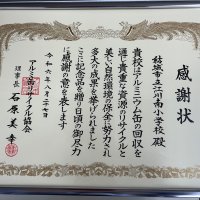 感謝状
結城市立江川南小学校殿
貴校はアルミニウム缶の回収を
通じ貴重な資源のリサイクルと
美しい自然環境の保全に努力され
多大の成果を挙げられました
ここに記念品を贈り日頃の御尽力
に感謝の意を表します
令和六年八月二十七日
アルミ缶リサイクル協会
理事長 石原美幸